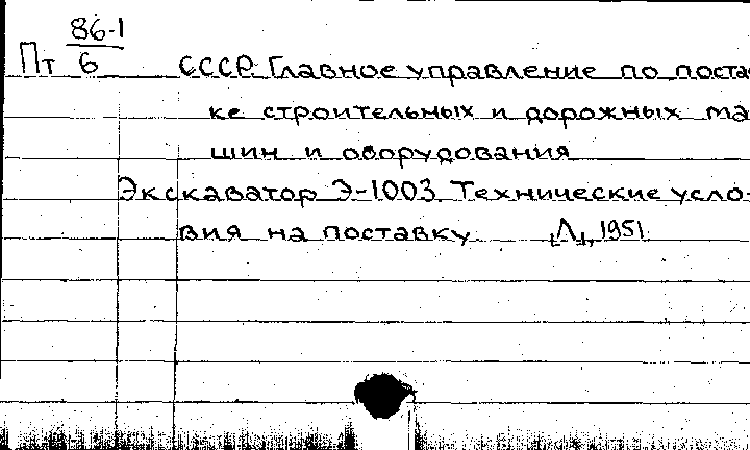 Пт 86-1/6
СССР. Главное управление по поста
ке строительных и дорожных ма
шин и оборудования
Экскаватор Э-1003. Технические усло-
вия на поставку. [Л], 1951.